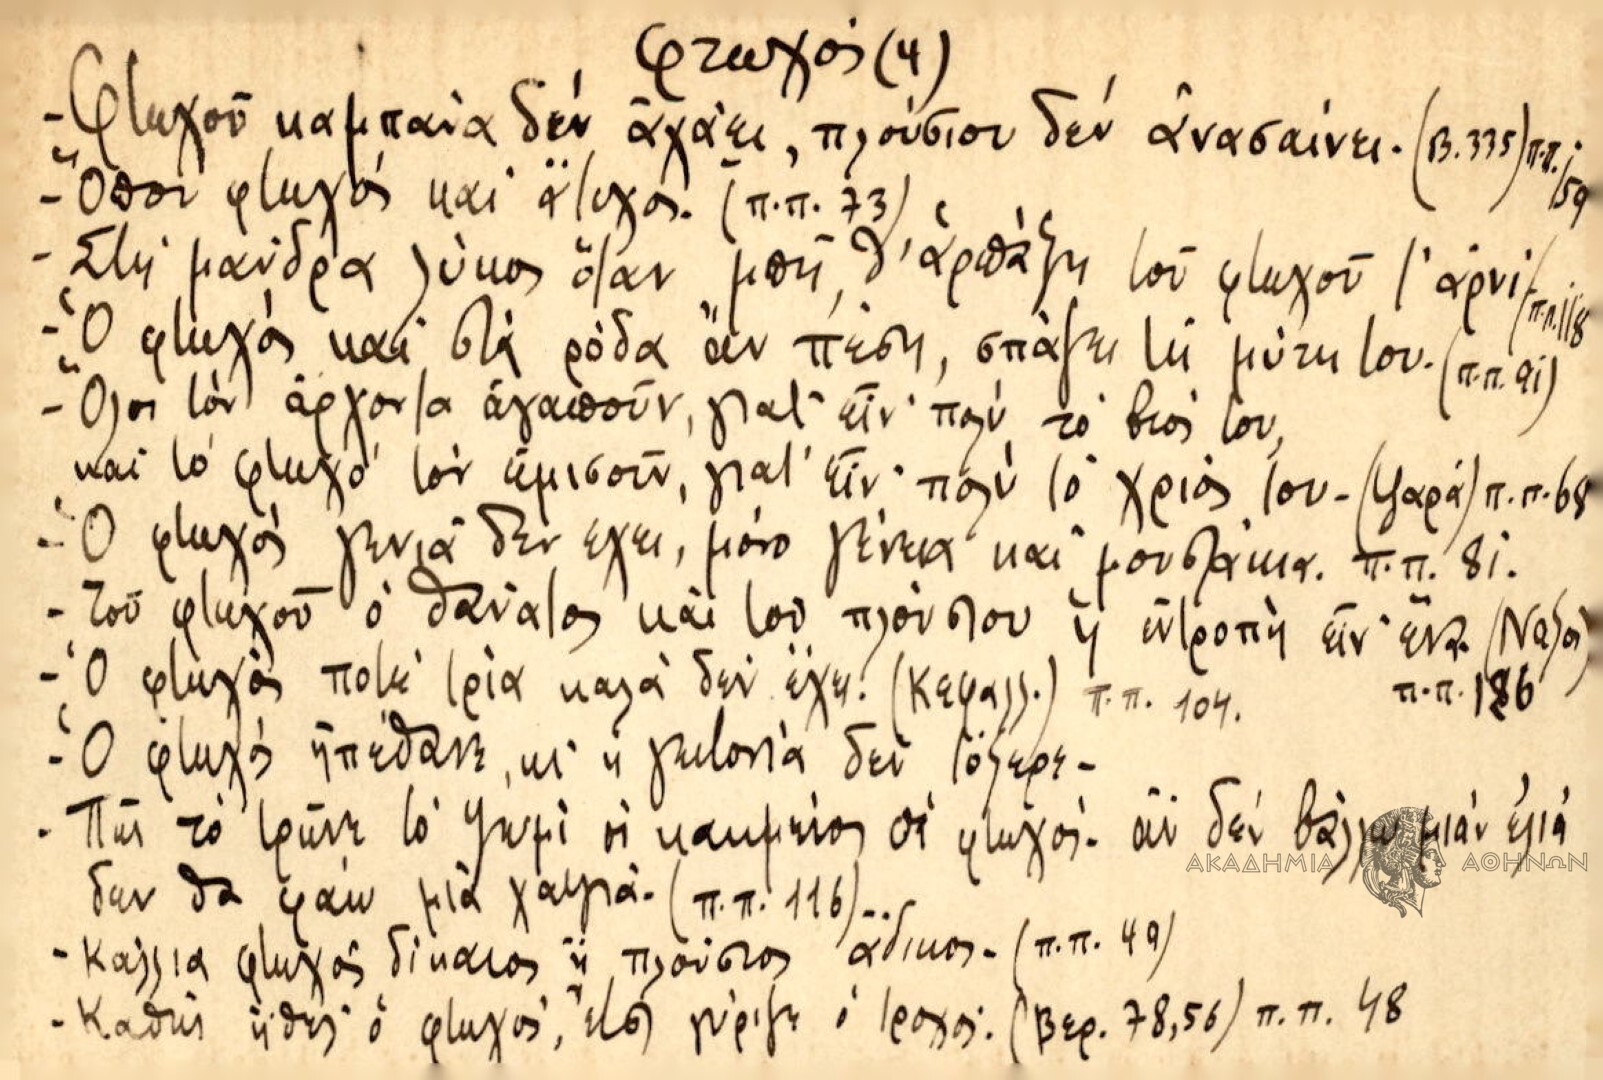 φτωχός (4)
- Φτωχοῦ καμπάνα δέν ἀχάει, πλούσιου δέν ἀνασαίνει. (Β. 335) π.π. 59
- Ὅπου φτωχός καί ἄτυχος. (π.π. 73)
- Στή μάνδρα λύκος ὅταν μπῆ, θ' ἁρπάξη τοῦ φτωχοῦ τ' ἀρνί. (π.π. 118
- Ὁ φτωχός καί στά ρόδα ἄν πέση, σπάζει τή μύτη του. (π.π. 91)
- Ὅλοι τόν ἄρχοντα ἀγαποῦν, γιατ' εἶν' πολύ τό βιός του,
καί τό φτωχό τόν ἐμισοῦν, γιατ' εἶν' πολύ τό χριός του - (Ψαρά) π.π. 68
- Ὁ φτωχός γενιά δεν εχει, μόνο γένεια καί μουστάκια. π.π. 81.
- Τοῦ φτωχοῦ ὁ θάνατος καί τοῦ πλούσιου ἡ ντροπή εἶν' ἕνα. (Νάξος)
π.π. 186
- Ὁ φτωχός ποτέ τρία καλά δέν ἔχει. (Κεφαλλ.) π.π. 104.
- Ὁ φτωχός ἠπέθανε, κι' ἡ γειτονιά δέν τὄξερε -
- Πῶς τό τρῶνε τό ψωμί οἱ καημένοι οἱ φτωχοί. ἄν δέν βάλλω μιάν ἐλιά
δεν θα φάω μιά χαψιά. (π.π. 116)..
- Κάλλια φτωχός δίκαιος ἤ πλούσιος ἄδικος. (π.π. 49)
- Καθώς ἤθελ' ὁ φτωχός, ἔτσι γύριζε ὁ τροχός. (Βερ. 78,56) π.π. 48
ΑΚΑΔΗΜΙΑ ΑΘΗΝΩΝ